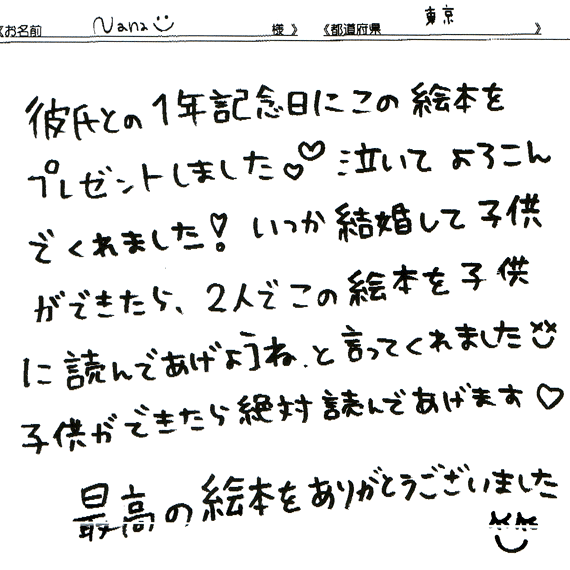 《お名前 Nana 様》 《都道府県 東京 》
彼氏との1年記念日にこの絵本を
プレゼントしました♡♡ 泣いて よろこん
でくれました! いつか結婚して子供
ができたら、2人でこの絵本を子供
に読んであげようね、と言ってくれました
子供ができたら絶対読んであげます♡
最高の絵本をありがとうございました